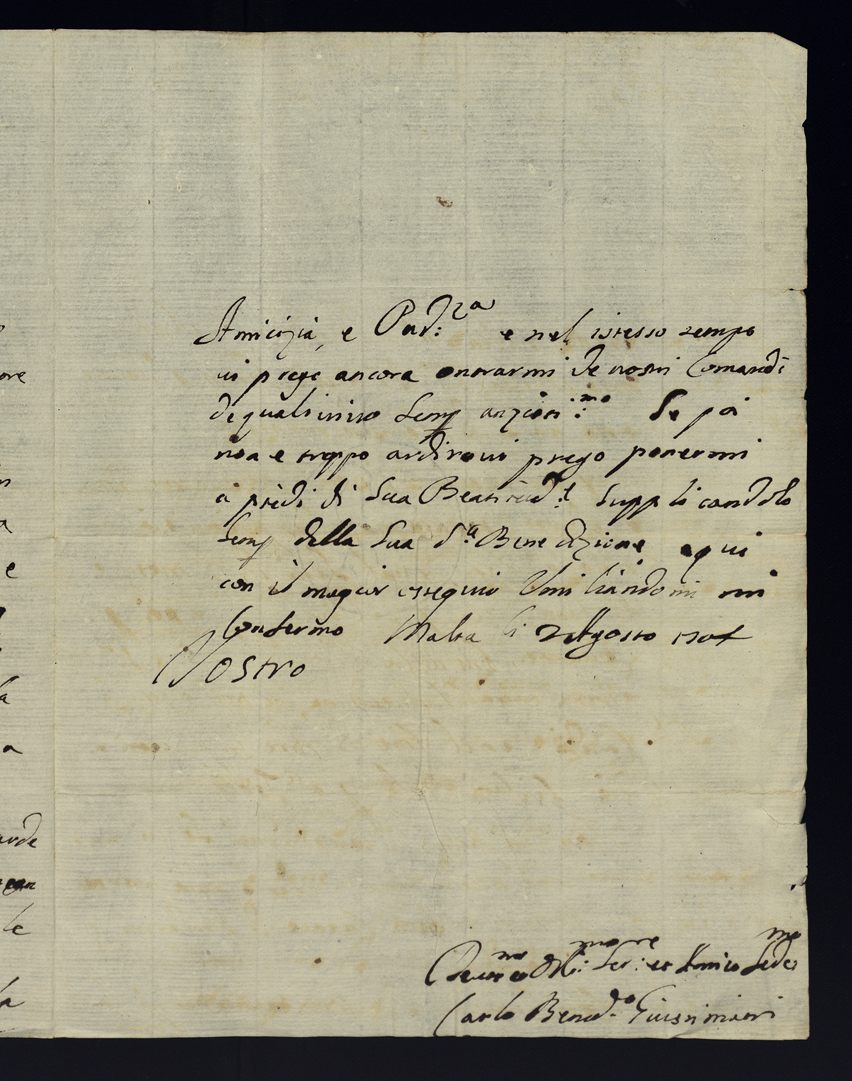 Amicizia, e Pad:za e nel istesso tempo
vi prego ancora onorarmi de vostri Comandi
de quali vivo Semp anziosi:mo Se poi
non e troppo ardire vi prego ponermi
a piedi di Sua Beatitud:e Supplicandolo
Semp della Sua S.ta Benedizione e qui
con il magior ossequio Umiliandomi mi
Confermo Malta li Agosto 1704
Vostro
Devmo et Obl:mo Ser:re et Amico Fede:mo
Carlo Bened.o Giustiniani
ore
n
a
e
la
a
le
la